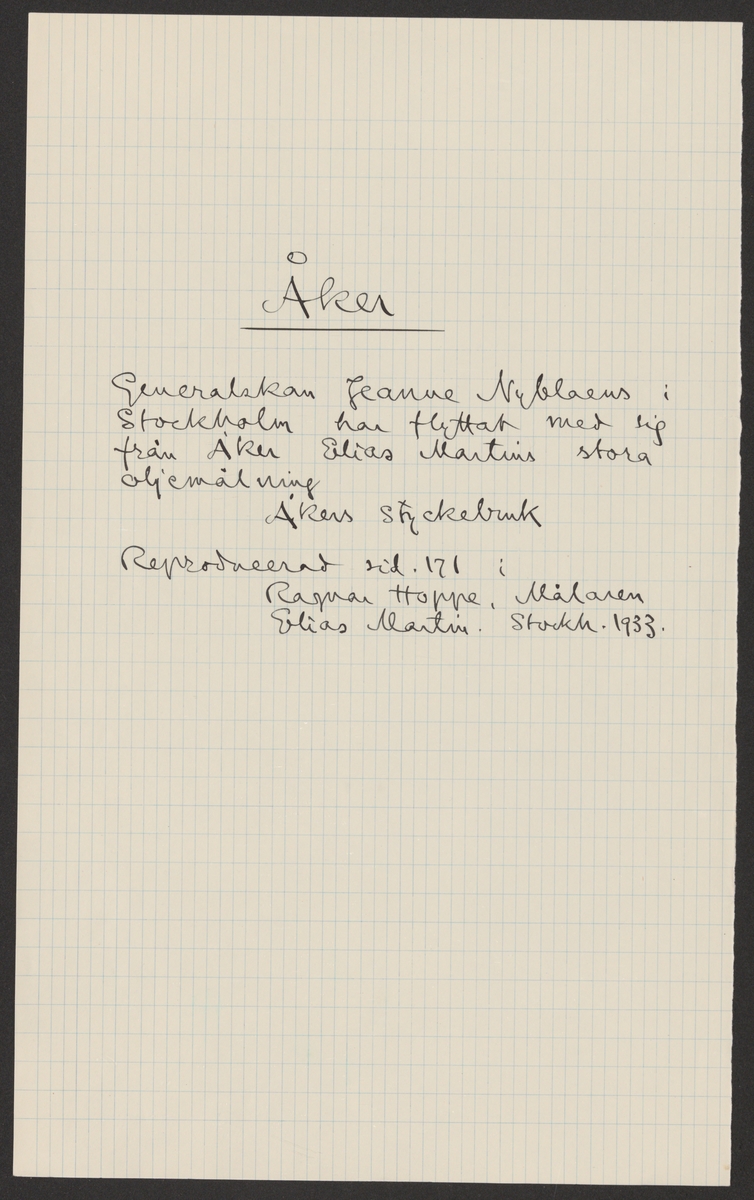 Åker
Generalskan Jeanne Nyblaeus i
Stockholm har flyttat med sig
från Åker Elias Martins stora
oljemålning
Åkers Styckebruk
Reproducerad sid. 171 i
Ragnar Hoppe, Målaren
Elias Martin. Stockh. 1933.